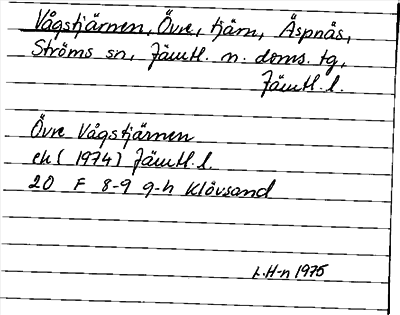 Vågstjärnen, Övre, tjärn, Äspnäs,
Ströms sn, Jämtl. n. doms. tg,
Jämtl. l.
Övre Vågstjärnen
ek (1974) Jämtl. l
20 F 8-9 g-h Klövsand
L.H-n 1975